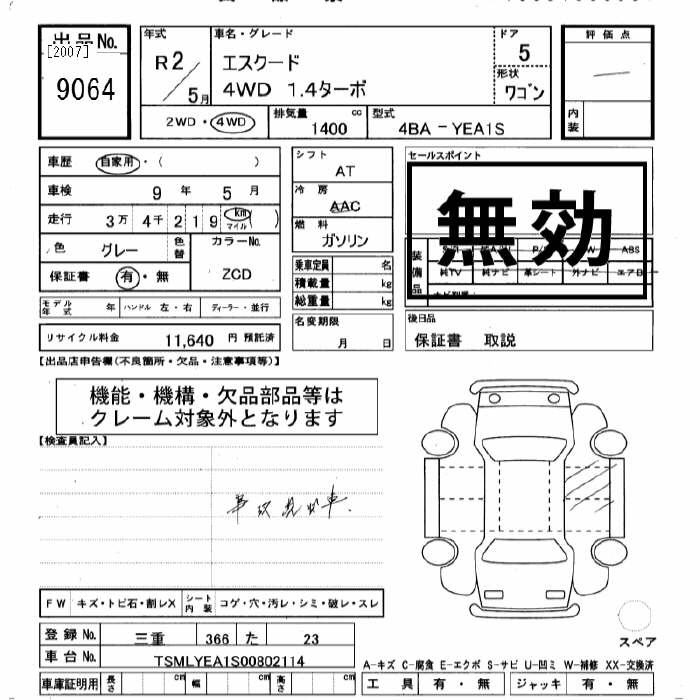 出品No.
[2007]
9064
年式
R2/5月
車名・グレード
エスクード
4WD 1.4ターボ
ドア
5
形状
ワゴン
評価点
内装
2WD・4WD
排気量 1400 cc
型式 4BA-YEA1S
車歴 自家用・( )
車検 9年 5月
走行 3万 4千 2 1 9 km マイル ( )
色 グレー 色替
カラーNo. ZCD
保証書 有・無
モデル年式 年 ハンドル 左・右 ディーラー・並行
リサイクル料金 11,640 円 預託済
シフト AT
冷房 AAC
燃料 ガソリン
乗車定員 名
積載量 kg
総重量 kg
名変期限
月 日
セールスポイント
無効
装備品
ABS
純TV 純ナビ 革シート 外ナビ エアB
後日品
保証書 取説
【出品店申告欄(不良箇所・欠品・注意事項等)】
機能・機構・欠品部品等は
クレーム対象外となります
【検査員記入】
FW キズ・トビ石・割レX シート内装 コゲ・穴・汚レ・シミ・破レ・スレ
登録No. 三重 366 た 23
車台No. TSMLYEA1S00802114
車庫証明用 長さ cm 幅 cm 高さ cm
スペア
A-キズ C-腐食 E-エクボ S-サビ U-凹ミ W-補修 XX-交換済
工具 有・無 ジャッキ 有・無